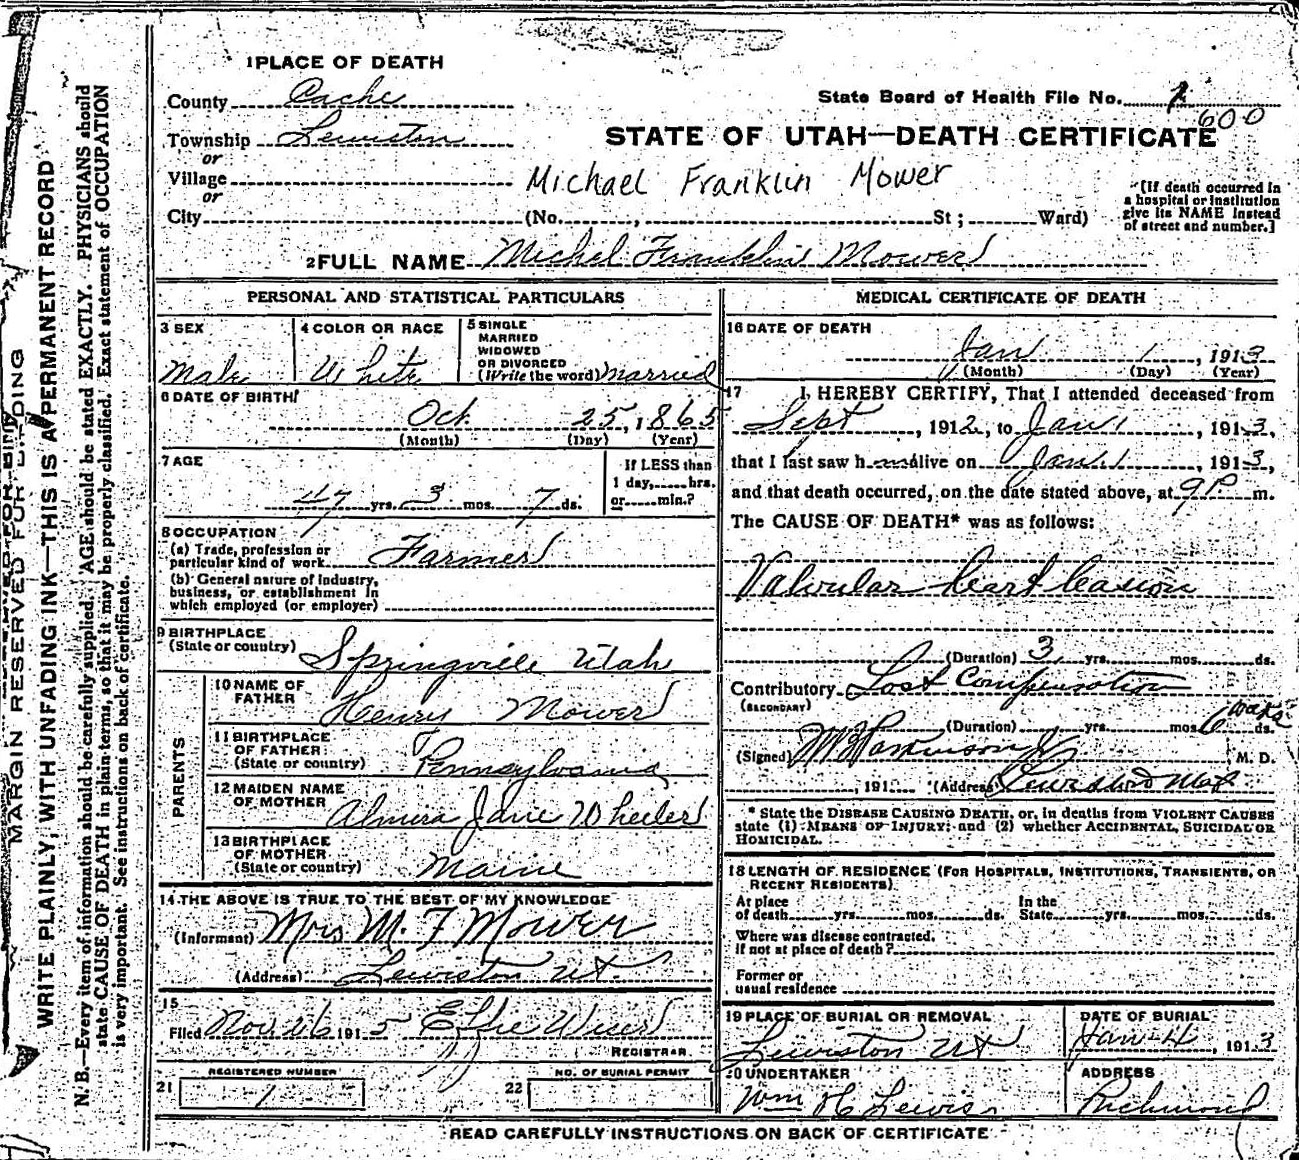 MARGIN RESERVED FOR BINDING
WRITE PLAINLY, WITH UNFADING INK—THIS IS A PERMANENT RECORD
N. B.—Every item of information should be carefully supplied. AGE should be stated EXACTLY. PHYSICIANS should
state CAUSE OF DEATH in plain terms, so that it may be properly classified. Exact statement of OCCUPATION
is very important. See instructions on back of certificate.
1 PLACE OF DEATH
County Cache
State Board of Health File No. 1
600
Township Lewiston
STATE OF UTAH—DEATH CERTIFICATE
or
Village
Michael Franklin Mower
or
City (No. , St ; Ward)
[If death occurred in
a hospital or institution
give its NAME instead
of street and number.]
2 FULL NAME Michel Franklin Mower
PERSONAL AND STATISTICAL PARTICULARS
3 SEX
Male
4 COLOR OR RACE
White
5 SINGLE
MARRIED
WIDOWED
OR DIVORCED
(Write the word) Married
6 DATE OF BIRTH
Oct. 25, 1865
(Month) (Day) (Year)
7 AGE
47 yrs. 3 mos. 7 ds.
If LESS than
1 day, hrs.
or min.?
8 OCCUPATION
(a) Trade, profession or
particular kind of work Farmer
(b) General nature of industry,
business, or establishment in
which employed (or employer)
9 BIRTHPLACE
(State or country) Springville Utah
PARENTS
10 NAME OF
FATHER Henry Mower
11 BIRTHPLACE
OF FATHER
(State or country) Pennsylvania
12 MAIDEN NAME
OF MOTHER Almira Jane Wheeler
13 BIRTHPLACE
OF MOTHER
(State or country) Maine
14 THE ABOVE IS TRUE TO THE BEST OF MY KNOWLEDGE
(Informant) Mrs M. F Mower
(Address) Lewiston Ut
15
Filed Nov. 26 1915 Effie
REGISTRAR
REGISTERED NUMBER
21 1
NO. OF BURIAL PERMIT
22
MEDICAL CERTIFICATE OF DEATH
16 DATE OF DEATH
Jan 1, 1913
(Month) (Day) (Year)
17 I HEREBY CERTIFY, That I attended deceased from
Sept , 1912, to Jan 1 , 1913,
that I last saw h alive on Jan. 1 , 1913,
and that death occurred, on the date stated above, at 9 P m.
The CAUSE OF DEATH* was as follows:
Valvular heart
(Duration) 3 yrs. mos. ds.
Contributory Lost Compensation
(SECONDARY)
(Duration) yrs. mos. 6 weeks
(Signed) Parkinson Jr M. D.
, 191 (Address)
* State the DISEASE CAUSING DEATH, or, in deaths from VIOLENT CAUSES
state (1) MEANS OF INJURY; and (2) whether ACCIDENTAL, SUICIDAL OR
HOMICIDAL.
18 LENGTH OF RESIDENCE (FOR HOSPITALS, INSTITUTIONS, TRANSIENTS, OR
RECENT RESIDENTS)
At place In the
of death yrs. mos. ds. State yrs. mos. ds.
Where was disease contracted,
if not at place of death?
Former or
usual residence
19 PLACE OF BURIAL OR REMOVAL
Lewiston Ut
DATE OF BURIAL
Jan 4, 1913
20 UNDERTAKER
Wm H Lewis
ADDRESS
Richmond
READ CAREFULLY INSTRUCTIONS ON BACK OF CERTIFICATE